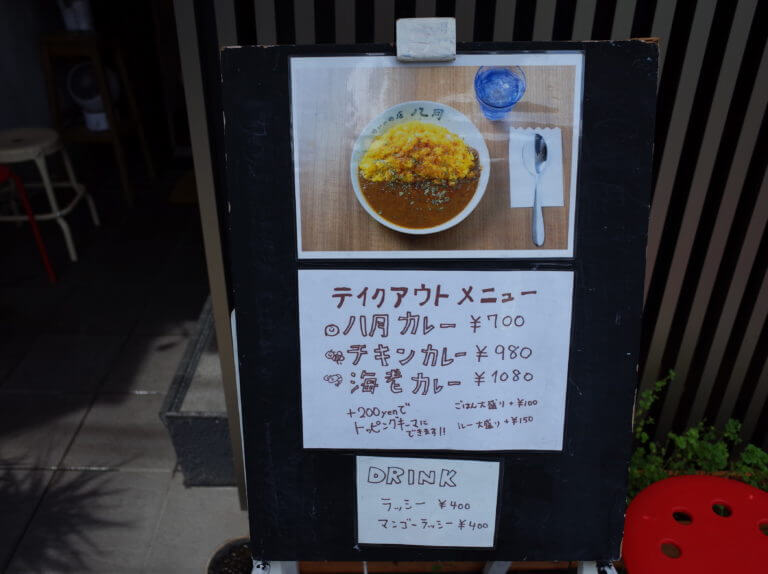 カレーの店 八月
テイクアウト メニュー
八月 カレー ¥700
チキンカレー ¥980
海老カレー ¥1080
+200yenで
トッピングキーマに
できます!!
ごはん大盛り +¥100
ルー大盛り +¥150
DRINK
ラッシー ¥400
マンゴーラッシー ¥400